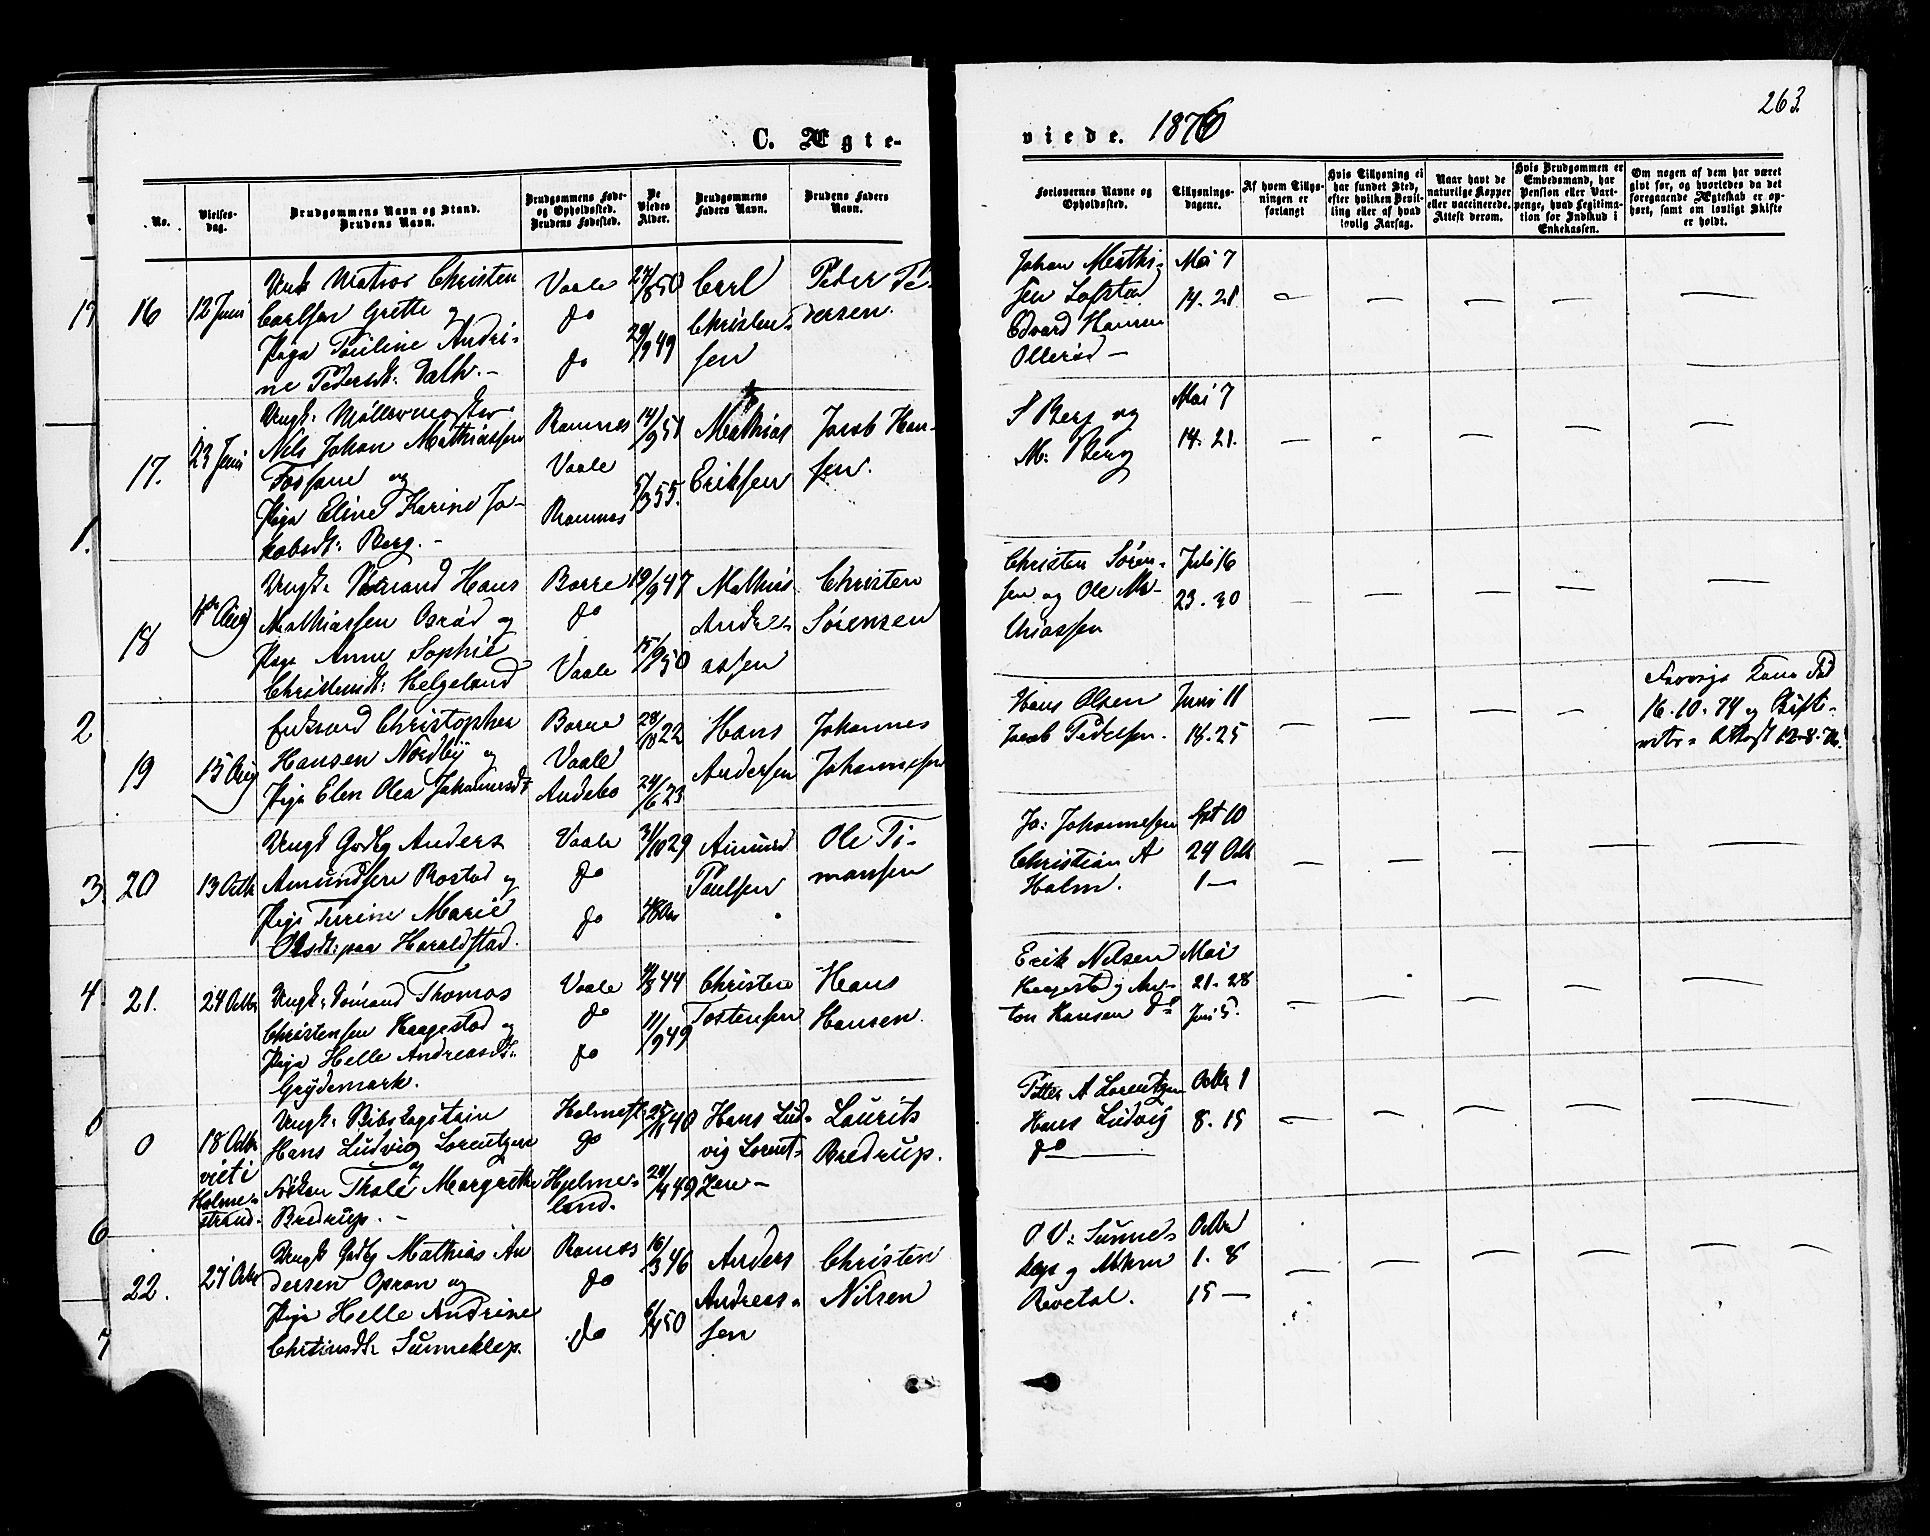 263
C. Ægte-
viede. 1876
No.
Vielses-
dag.
Brudgommens Navn og Stand.
Brudens Navn.
Brudgommens Føde-
og Opholdssted.
Brudens Fødested.
De
Viedes
Alder.
Brudgommens
Faders Navn.
Brudens Faders
Navn.
Forlovernes Navne og
Opholdssted.
Tillysnings-
dagene.
Af hvem Tillys-
ningen er
forlangt
Hvis Tillysning ei
har fundet Sted,
efter hvilken Bevil-
ling eller af hvad
lovlig Aarsag.
Naar havt de
naturlige Kopper
eller vaccinerede.
Attest derom.
Hvis Brudgommen er
Embedsmand, har
Pension eller Vart-
penge, hvad Legitima-
tion for Indskud i
Enkekassen.
Om nogen af dem har været
givt før, og hvorledes da det
foregaaende Ægteskab er op-
hørt, samt om lovligt Skifte
er holdt.
16
12 Juni
Ungk Matros Christen
Carlsen Grette og
Pige Pauline Andri-
ne Pedersdt:
Vaale
do
do
27/8 50
29/9 49
Carl
Christen-
sen
Peder Pe-
dersen.
Johan Mathi-
sen Lofstad
Edvard Hansen
Ollerød —
Mai 7
14. 21.
17.
23 Juni
Ungk: Møllermester
Nils Johan Mathiassen
Fossane og
Pige Eline Karine Ja-
kobsdt: Berg. —
Ramnes
Vaale
Ramnes
14/9 51
5/3 55.
Mathias
Eriksen
Jacob Han-
sen.
S Berg og
M: Berg
Mai 7
14. 21.
18
4de Aug
Ungk: Sømand Hans
Mathiassen Osrød og
Pige Anne Sophie
Christensdt: Helgeland
Borre
do
Vaale
19/9 47
15/9 50
Mathias
Andre-
assen
Christen
Sørensen
Christen Søren-
sen og Ole Ma-
thiassen
Juli 16
23. 30
19
15 Aug
Enkemand Christopher
Hansen Nordby og
Pige Elen Olea Johannesdt
Borre
Vaale
Andebo
28/10 22
24/6 23
Hans
Andersen
Johannes
Johannesen
Hans Olsen
Jacob Pedersen.
Juni 11
18. 25
16. 10. 74 og Skifte-
20
13 Octb
Ungk Gbdbg Anders
Amundsen Rostad og
Pige Turine Marie
Olsdt: paa Haraldstad.
Vaale
do
do
31/10 29
48 Aar
Amund
Paulsen
Ole Ti-
mansen
Jo: Johannesen
Christian A
Holm.
Spt 10
24 Octb
1 —
21.
24 Octbr
Ungk: Sømand Thomas
Christensen Haagestad og
Pige Helle Andreasdt:
Grydemark.
Vaale
do
do
11/9 49
Christen
Tostensen
Hans
Hansen
Erik Nilsen
Haagestad og An-
ton Hansen do
Mai
21. 28
Juni 5.
0
18 Octbr
viet i
Holme-
strand.
Ungk: Skibskaptain
Hans Ludvig Lorentzen
og
Frøken Thale Margrethe
Bredrup. —
Holmest.
do
Hjelme-
land.
25/11 40
24/4 49
Hans Lud-
vig Lorent-
zen —
Laurits
Bredrup.
Petter A Lorentzen
Hans Ludvig
do
Octbr 1
8. 15
22.
27 Octbr
Ungk Gbdbg Mathias An
dersen Opran og
Pige Helle Andrine
Chrstinsdt: Sunneklep.
Ramnes
do
do
16/3 46
6/4 50
Anders
Andreas-
sen
Christen
Nilsen
O V: Sunne-
klep og
Revetal.
Octbr
1. 8
15 —
17
1.
2
3.
4.
6
7